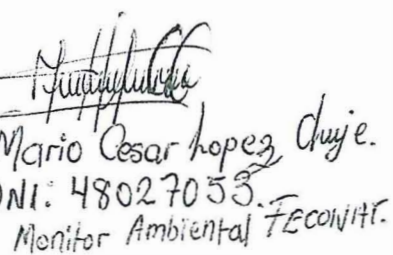 Mario Cesar Lopez Chuje.
DNI: 48027053.
Monitor Ambiental FECONAT.